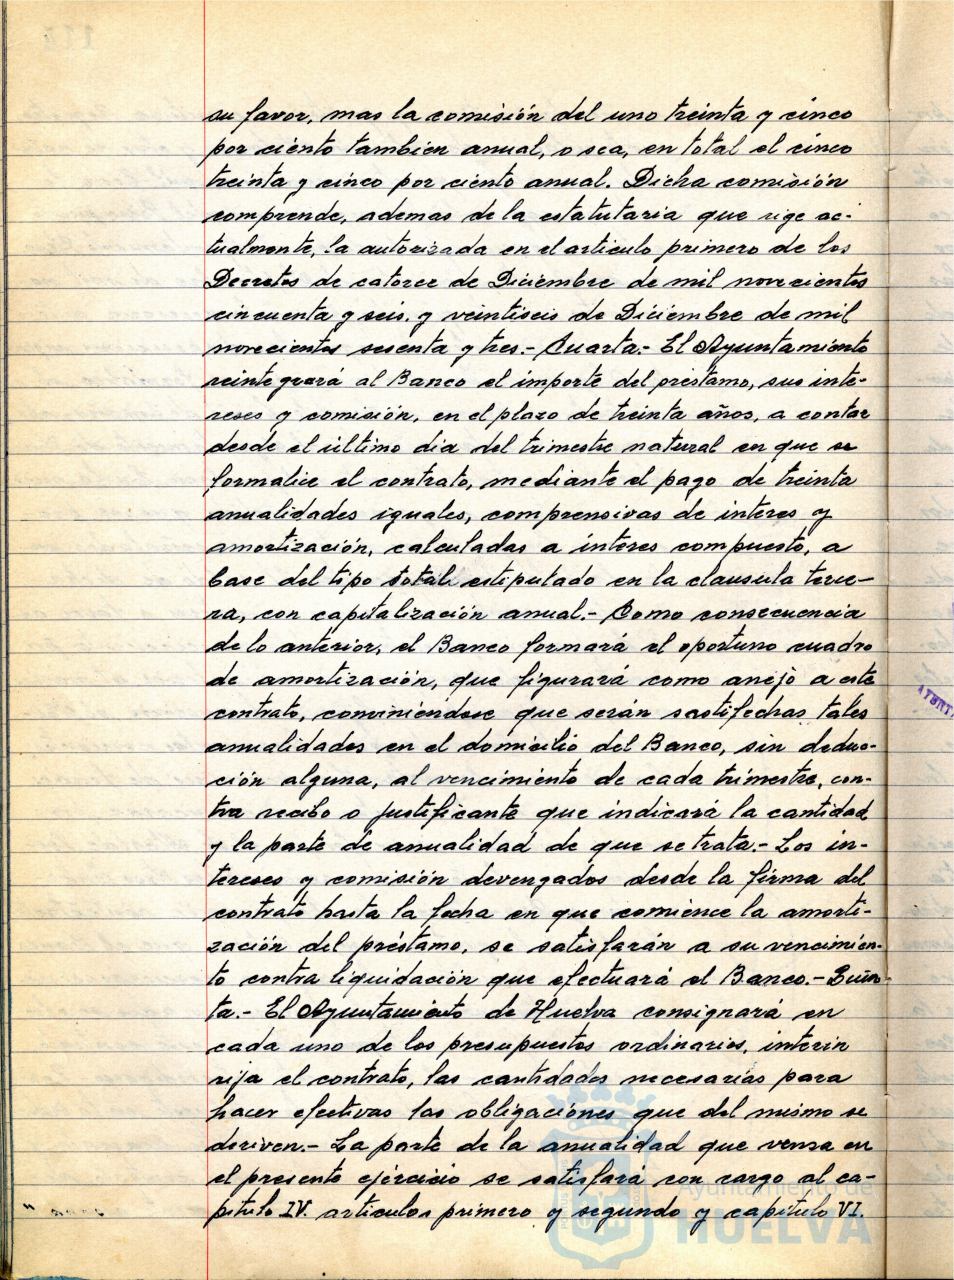 su favor, mas la comisión del uno treinta y cinco
por ciento tambien anual, o sea, en total el cinco
treinta y cinco por ciento anual. Dicha comisión
comprende, ademas de la estatutaria que rige ac-
tualmente, la autorizada en el articulo primero de los
Decretos de catorce de Diciembre de mil novecientos
cincuenta y seis. y veintiseis de Diciembre de mil
novecientos sesenta y tres.- Cuarta.- El Ayuntamiento
reintegrará al Banco el importe del préstamo, sus inte-
reses y comisión, en el plazo de treinta años, a contar
desde el último dia del trimestre natural en que se
formalice el contrato, mediante el pago de treinta
anualidades iguales, comprensivas de interes y
amortización, calculadas a interes compuesto, a
base del tipo total estipulado en la clausula terce-
ra, con capitalización anual.- Como consecuencia
de lo anterior, el Banco formará el oportuno cuadro
de amortización, que figurará como anejo a este
contrato, conviniéndose que serán sastifechas tales
anualidades en el domicilio del Banco, sin deduc-
ción alguna, al vencimiento de cada trimestre, con-
tra recibo o justificante que indicará la cantidad
y la parte de anualidad de que se trata.- Los in-
tereses y comisión devengados desde la firma del
contrato hasta la fecha en que comience la amorti-
zación del préstamo, se satisfarán a su vencimien-
to contra liquidación que efectuará el Banco.- Quin-
ta.- El Ayuntamiento de Huelva consignará en
cada uno de los presupuestos ordinarios, interin
rija el contrato, las cantidades necesarias para
hacer efectivas las obligaciónes que del mismo se
deriven.- La parte de la anualidad que venza en
el presente ejercicio se satisfará con cargo al ca-
pitulo IV. articulos primero y segundo y capitulo VI.
Ayuntamiento de
HUELVA